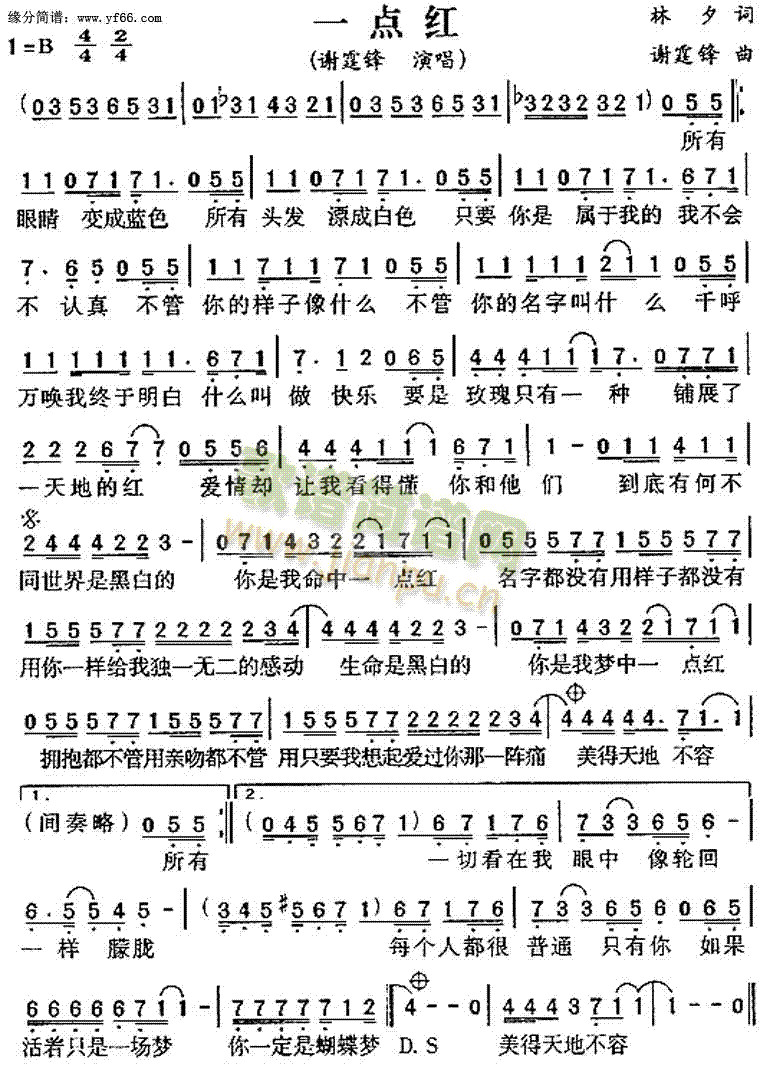 缘分简谱：www.yf66.com
一点红
林 夕 词
1=B 4/4 2/4
(谢霆锋 演唱)
谢霆锋 曲
(03536531 | 01♭31 4321 | 03536531 | ♭3232321) 055 ‖:
所有
11 07171. 055 | 11 07171. 055 | 11 07171. 671
眼睛 变成蓝色 所有 头发 漂成白色 只要 你是 属于我的 我不会
7. 65 055 | 11711710 055 | 11111211 055
不 认真 不管 你的样子像什么 不管 你的名字叫什 么 千呼
11 111 11. 671 | 7. 12 065 | 4441117. 0771
万唤我终于明白 什么叫 做 快乐 要是 玫瑰只有一 种 铺展了
222677 0556 | 444111 1671 | 1- 011411
一天地的红 爱情却 让我看得懂 你和他 们 到底有何不
24444223- | 07143221711 | 055577155577
同世界是黑白的 你是我命中一 点红 名字都没有用样子都没有
155577222222234 | 4444223- | 07143221711
用你一样给我独一无二的感动 生命是黑白的 你是我梦中一 点红
055577155577 | 1555772222234 | 44444. 71.1
拥抱都不管用亲吻都不管 用只要我想起爱过你那一阵痛 美得天地 不容
1. 2.
(间奏略) 055 :‖ (045 5671) 67176 | 733656-
所有 一切看在我 眼中 像轮回
6. 55 45- | (345#5671) 67176 | 733656065
一样 朦胧 每个人都很 普通 只有你 如果
66666711- | 7777712 ‖ 4--0 | 4443711 | 1--0 ‖
活着只是一场梦 你一定是蝴蝶梦 D.S 美得天地不容
歌谱简谱网
www.jianpu.cn